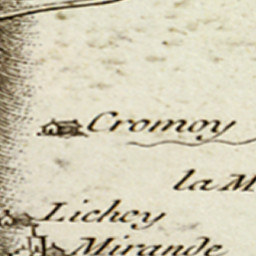 Cromoy
la M
Lichey
Mirande